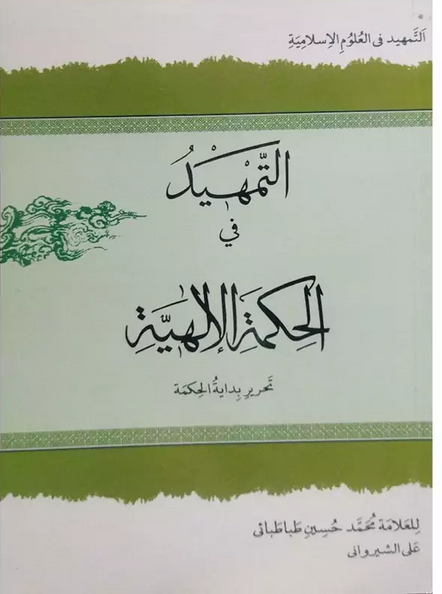 اَلتَّمهيد فى العُلُومِ الإسلاميّةِ
التَّمْهيْدُ
في
الحِكمَةِ الإلٰهيَّةِ
تَحرير بِدايةُ الحِكمَة
لِلعَلامَة مُحَمَّد حُسَين طباطبائى
عَلى الشيروانى